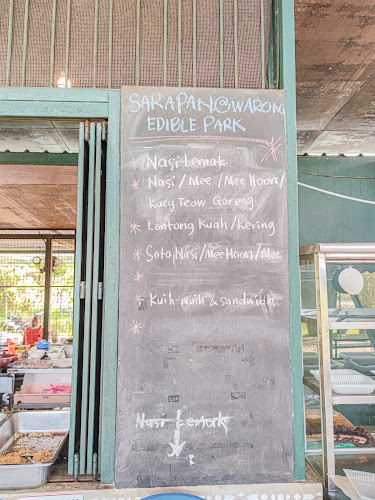 SARAPAN@WARONG
EDIBLE PARK
Nasi Lemak
Nasi/Mee/Mee Hoon/
Kuey Teow Goreng
Lontong Kuah/Kering
Soto Nasi/MeeHoon/Mee
Kuih-muih & sandwich
Nasi Lemak